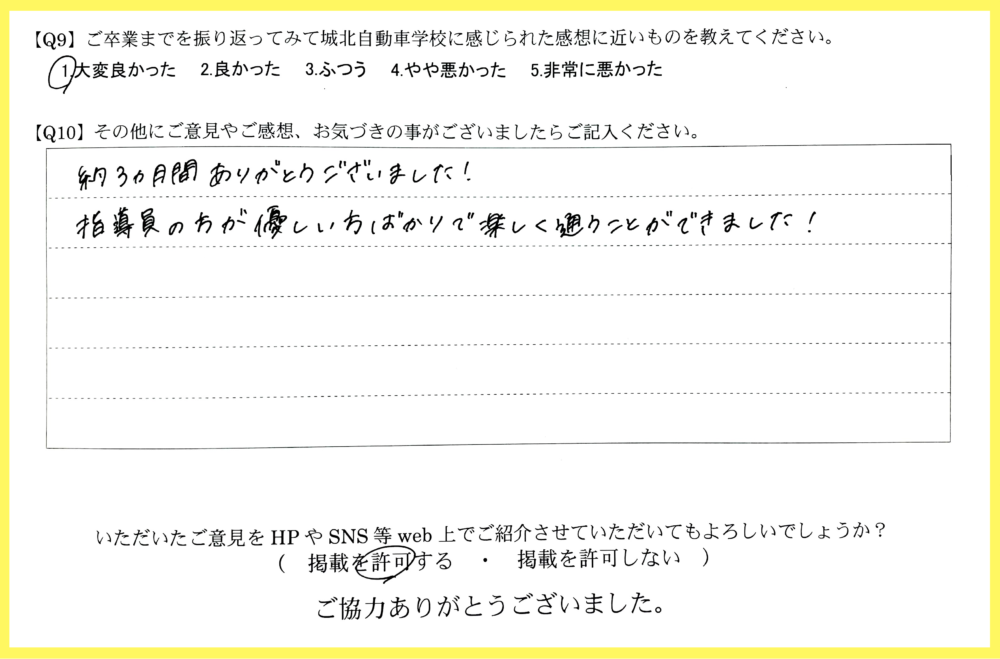 【Q9】ご卒業までを振り返ってみて城北自動車学校に感じられた感想に近いものを教えてください。
1.大変良かった 2.良かった 3.ふつう 4.やや悪かった 5.非常に悪かった
【Q10】その他にご意見やご感想、お気づきの事がございましたらご記入ください。
約3ヵ月間ありがとうございました!
指導員の方が優しい方ばかりで楽しく通うことができました!
いただいたご意見をHPやSNS等web上でご紹介させていただいてもよろしいでしょうか？
( 掲載を許可する ・ 掲載を許可しない )
ご協力ありがとうございました。